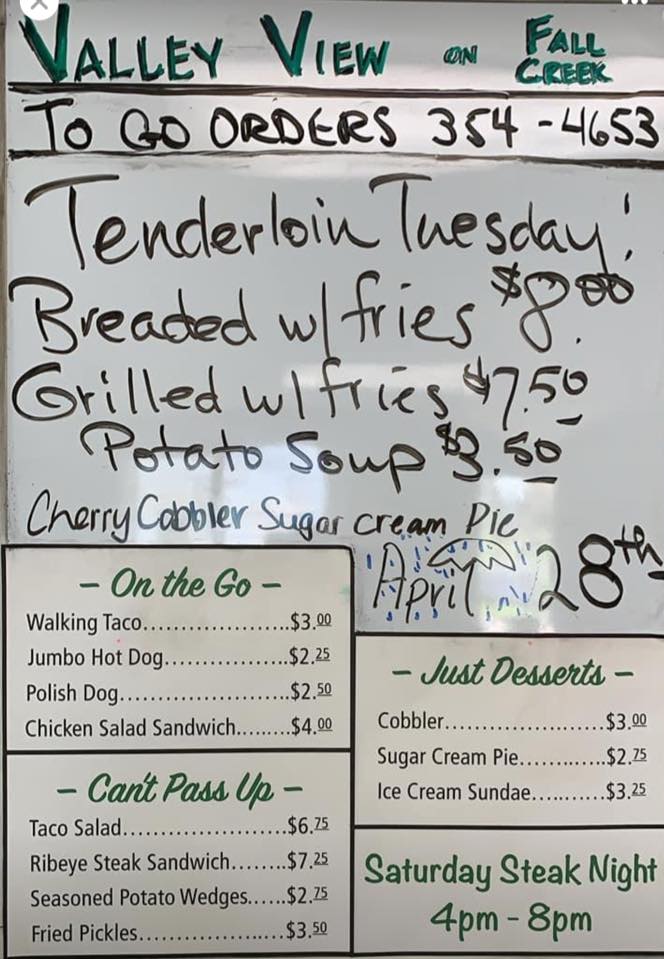 VALLEY VIEW ON FALL CREEK
TO GO ORDERS 354-4653
Tenderloin Tuesday!
Breaded w/fries $8.00
Grilled w/fries $7.50
Potato Soup $3.50
Cherry Cobbler Sugar cream Pie
April 28th
– On the Go –
Walking Taco.....................$3.00
Jumbo Hot Dog..................$2.25
Polish Dog.........................$2.50
Chicken Salad Sandwich.........$4.00
– Can't Pass Up –
Taco Salad........................$6.75
Ribeye Steak Sandwich........$7.25
Seasoned Potato Wedges......$2.75
Fried Pickles.....................$3.50
– Just Desserts –
Cobbler.......................$3.00
Sugar Cream Pie............$2.75
Ice Cream Sundae...........$3.25
Saturday Steak Night
4pm - 8pm